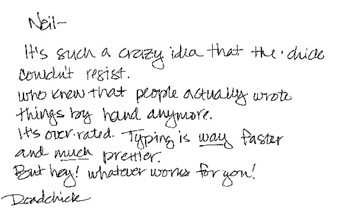 Neil-
It's such a crazy idea that the chick
couldn't resist.
who knew that people actually wrote
things by hand anymore.
It's over rated. Typing is way faster
and much prettier.
But hey! whatever works for you!
Deadchick